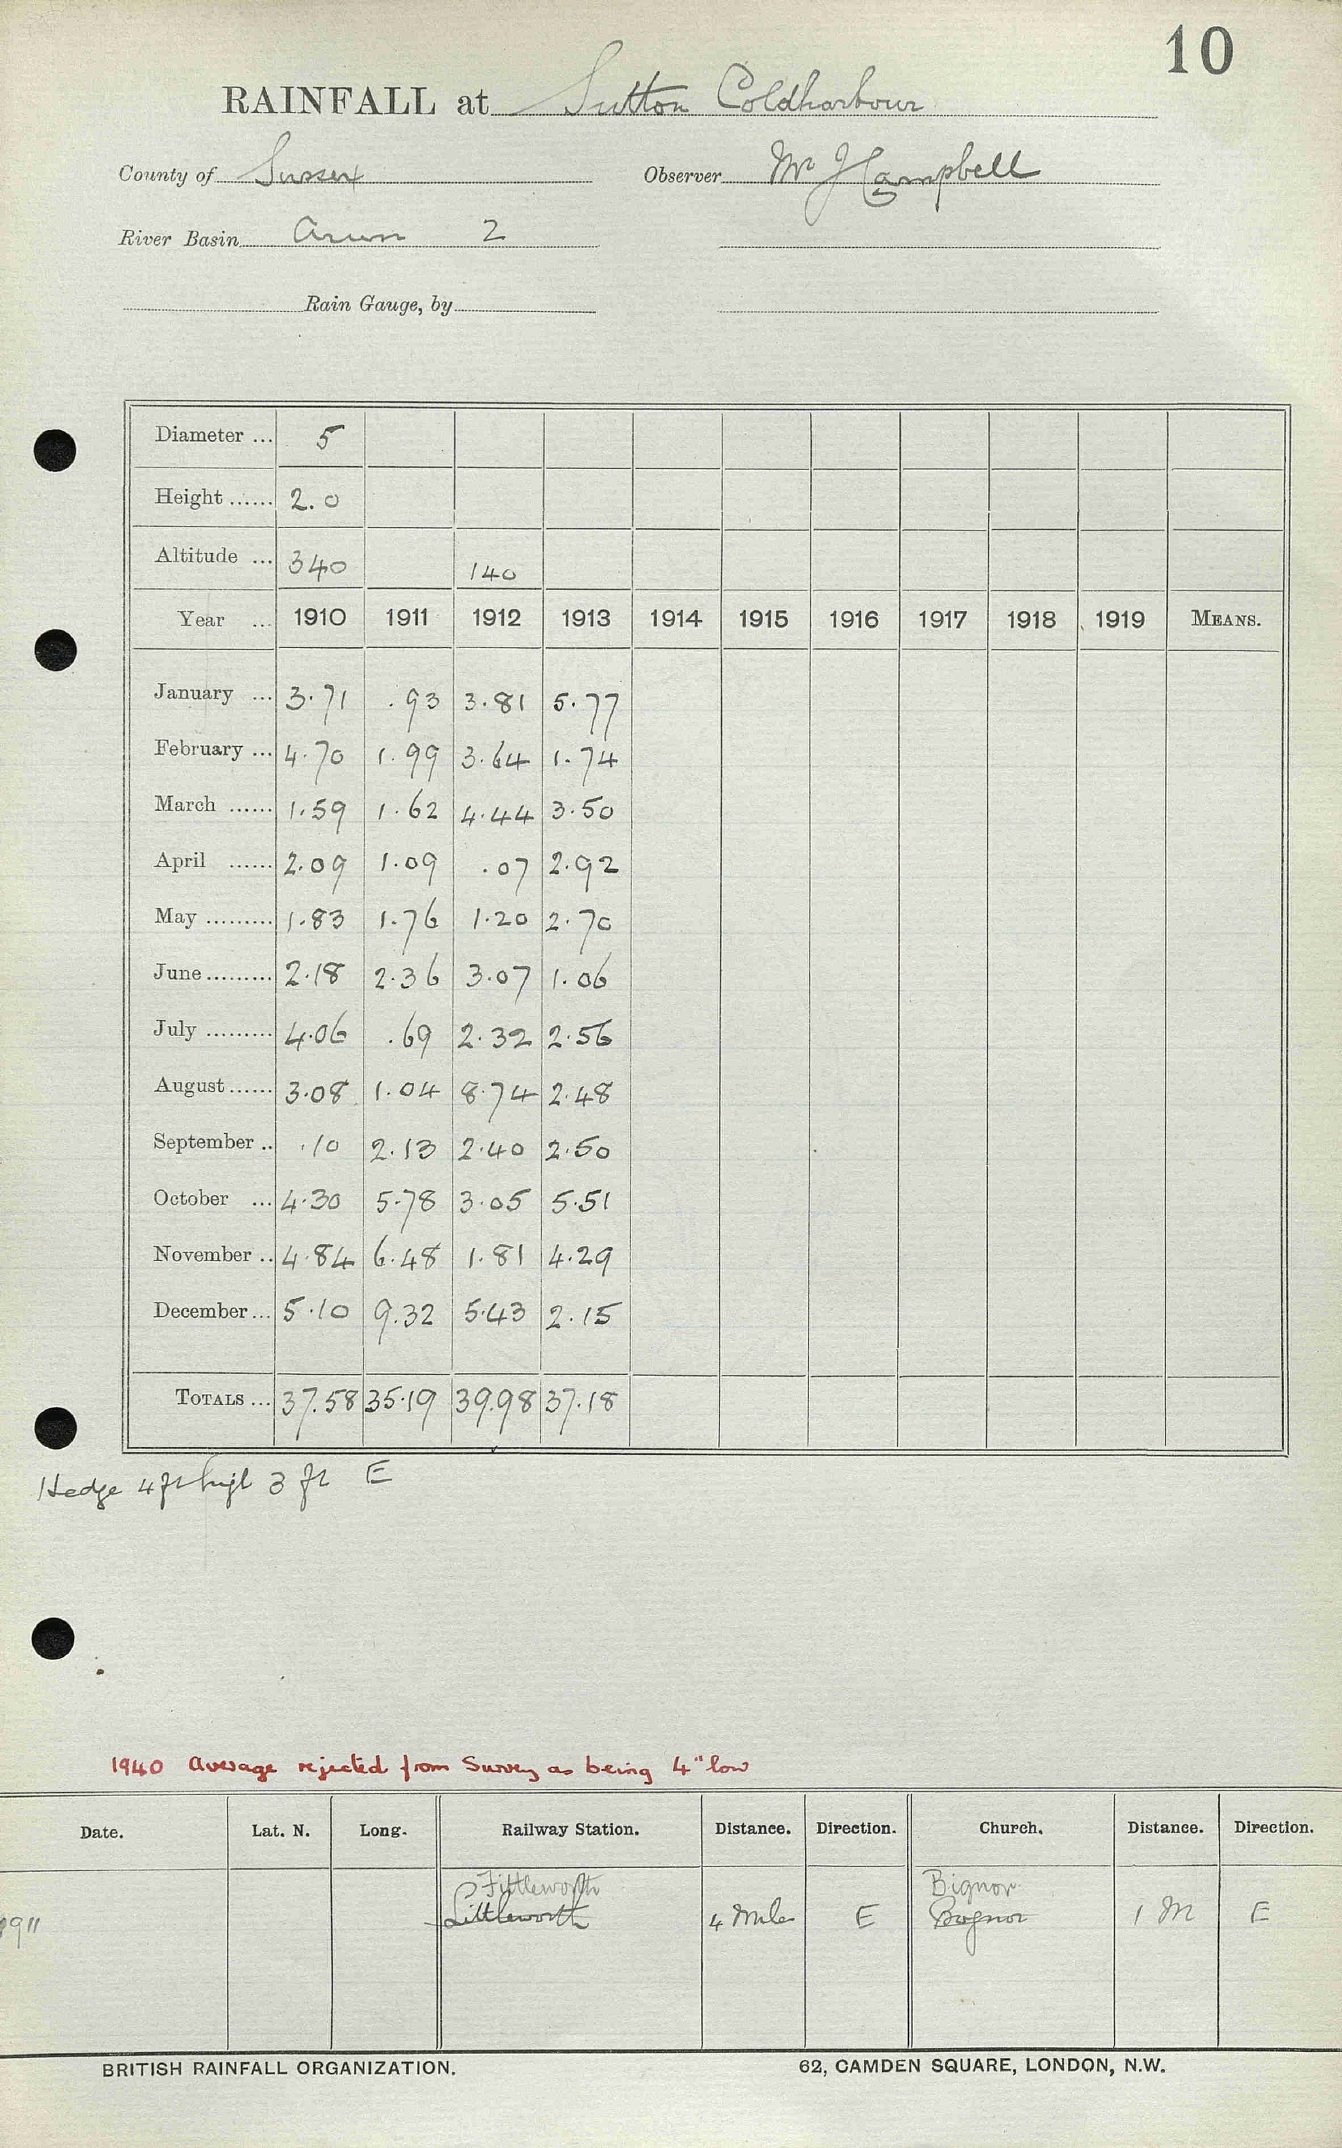 10
RAINFALL at Sutton Coldharbour
County of Sussex Observer Mr J Campbell
River Basin Arun 2
Rain Gauge, by
Diameter ... 5
Height ...... 2.0
Altitude ... 340 140
Year ... 1910 1911 1912 1913 1914 1915 1916 1917 1918 1919 MEANS.
January ... 3.71 .93 3.81 5.77
February ... 4.70 1.99 3.64 1.74
March ...... 1.59 1.62 4.44 3.50
April ...... 2.09 1.09 .07 2.92
May ......... 1.83 1.76 1.20 2.70
June ......... 2.18 2.36 3.07 1.06
July ......... 4.06 .69 2.32 2.56
August ...... 3.08 1.04 8.74 2.48
September .. .10 2.13 2.40 2.50
October ... 4.30 5.78 3.05 5.51
November .. 4.84 6.48 1.81 4.29
December ... 5.10 9.32 5.43 2.15
TOTALS ... 37.58 35.19 39.98 37.18
Hedge 4 ft high 3 ft E
1940 Average rejected from Survey as being 4" low
Date. Lat. N. Long. Railway Station. Distance. Direction. Church. Distance. Direction.
Fittleworth Bignor
1911 Littleworth 4 Mile E Bognor 1 M E
BRITISH RAINFALL ORGANIZATION. 62, CAMDEN SQUARE, LONDON, N.W.